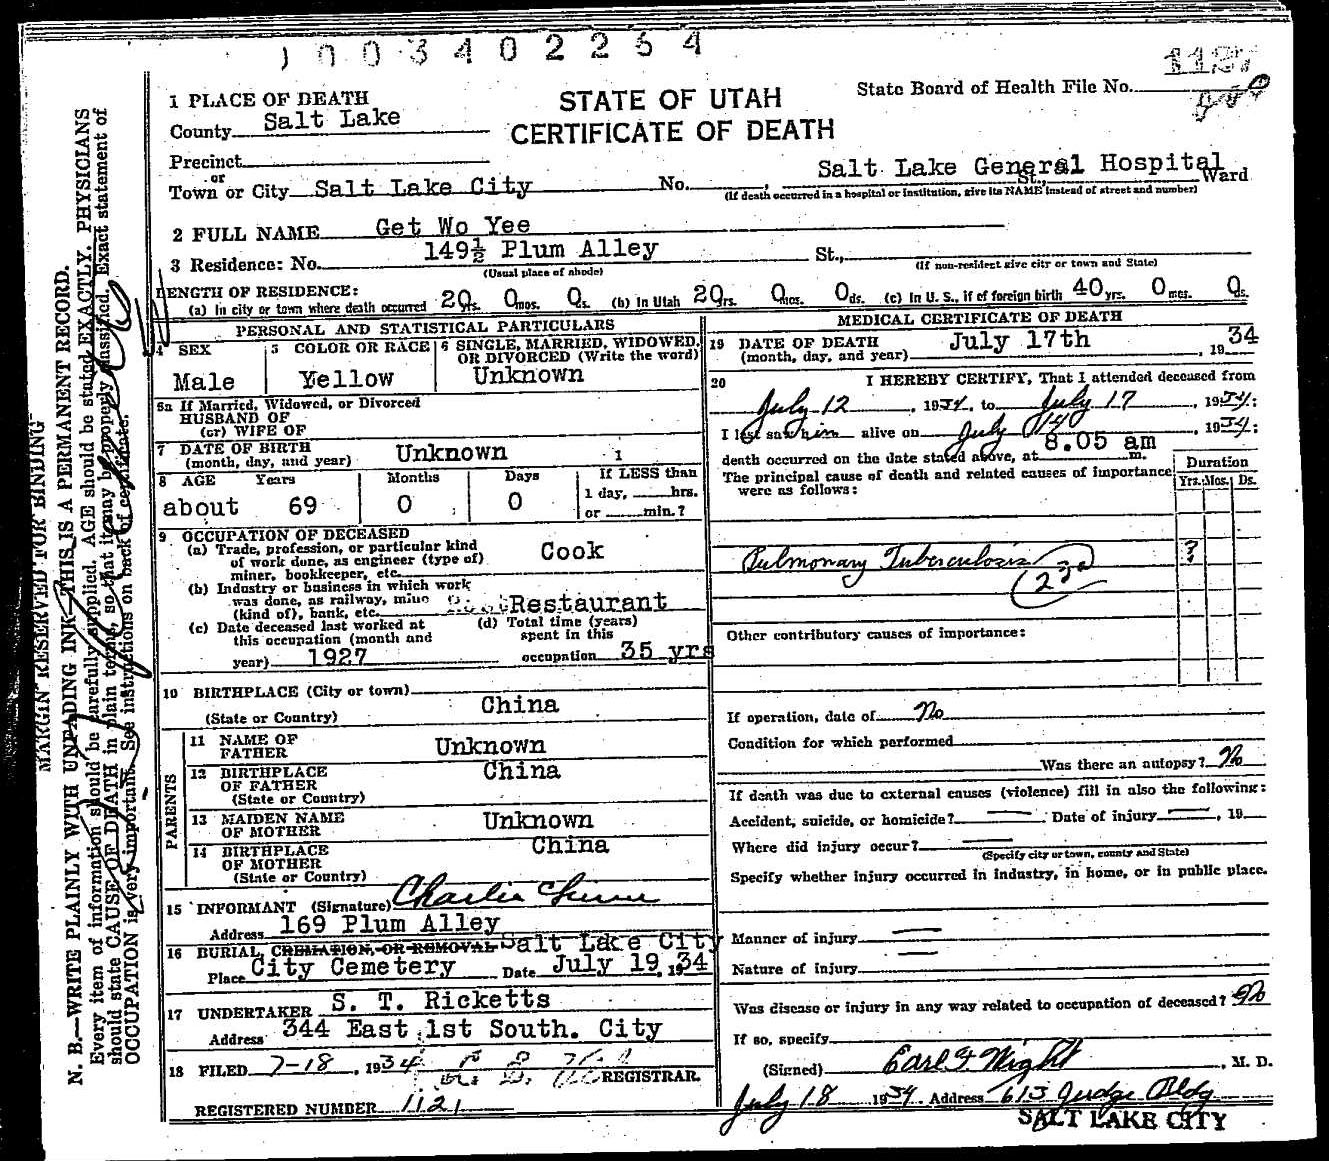 1003402254
1 PLACE OF DEATH
STATE OF UTAH
CERTIFICATE OF DEATH
State Board of Health File No.
County Salt Lake
Precinct
or
Town or City Salt Lake City No. , Salt Lake General Hospital St., Ward
(If death occurred in a hospital or institution, give its NAME instead of street and number)
2 FULL NAME Get Wo Yee
3 Residence: No. 149½ Plum Alley St.,
(Usual place of abode) (If non-resident give city or town and State)
LENGTH OF RESIDENCE:
(a) In city or town where death occurred 20 yrs. 0 mos. 0 ds. (b) In Utah 20 yrs. 0 mos. 0 ds. (c) In U. S., if of foreign birth 40 yrs. 0 mos. 0 ds.
PERSONAL AND STATISTICAL PARTICULARS
4 SEX
Male
5 COLOR OR RACE
Yellow
6 SINGLE, MARRIED, WIDOWED, OR DIVORCED (Write the word)
Unknown
5a If Married, Widowed, or Divorced
HUSBAND OF
(or) WIFE OF
7 DATE OF BIRTH
(month, day, and year) Unknown
8 AGE Years Months Days If LESS than
1 day, hrs.
or min.?
about 69 0 0
9 OCCUPATION OF DECEASED
(a) Trade, profession, or particular kind
of work done, as engineer (type of)
miner, bookkeeper, etc. Cook
(b) Industry or business in which work
was done, as railway, mine
(kind of), bank, etc. Restaurant
(c) Date deceased last worked at
this occupation (month and
year) 1927
(d) Total time (years)
spent in this
occupation 35 yrs
10 BIRTHPLACE (City or town)
(State or Country) China
PARENTS
11 NAME OF
FATHER Unknown
12 BIRTHPLACE
OF FATHER
(State or Country) China
13 MAIDEN NAME
OF MOTHER Unknown
14 BIRTHPLACE
OF MOTHER
(State or Country) China
15 INFORMANT (Signature) Charlie
Address 169 Plum Alley
16 BURIAL, CREMATION, OR REMOVAL Salt Lake City
Place City Cemetery Date July 19, 1934
17 UNDERTAKER S. T. Ricketts
Address 344 East 1st South. City
18 FILED 7-18, 1934 REGISTRAR
REGISTERED NUMBER 1121
MEDICAL CERTIFICATE OF DEATH
19 DATE OF DEATH
(month, day, and year) July 17th, 1934
20 I HEREBY CERTIFY, That I attended deceased from
July 12, 1934, to July 17, 1934:
I last saw him alive on July 14, 1934:
death occurred on the date stated above, at 8.05 am m.
The principal cause of death and related causes of importance
were as follows:
Duration
Yrs. Mos. Ds.
Pulmonary Tuberculosis ?
Other contributory causes of importance:
If operation, date of No
Condition for which performed
Was there an autopsy? No
If death was due to external causes (violence) fill in also the following:
Accident, suicide, or homicide? — Date of injury —, 19
Where did injury occur? —
(Specify city or town, county and State)
Specify whether injury occurred in industry, in home, or in public place.
Manner of injury —
Nature of injury —
Was disease or injury in any way related to occupation of deceased? No
If so, specify
(Signed) Earl F. Wight, M. D.
July 18 1934 Address 613 Judge Bldg
SALT LAKE CITY
MARGIN RESERVED FOR BINDING
N. B.—WRITE PLAINLY WITH UNFADING INK—THIS IS A PERMANENT RECORD.
Every item of information should be carefully supplied. AGE should be stated EXACTLY. PHYSICIANS
should state CAUSE OF DEATH in plain terms, so that it may be properly classified. Exact statement of
OCCUPATION is very important. See instructions on back of certificate.